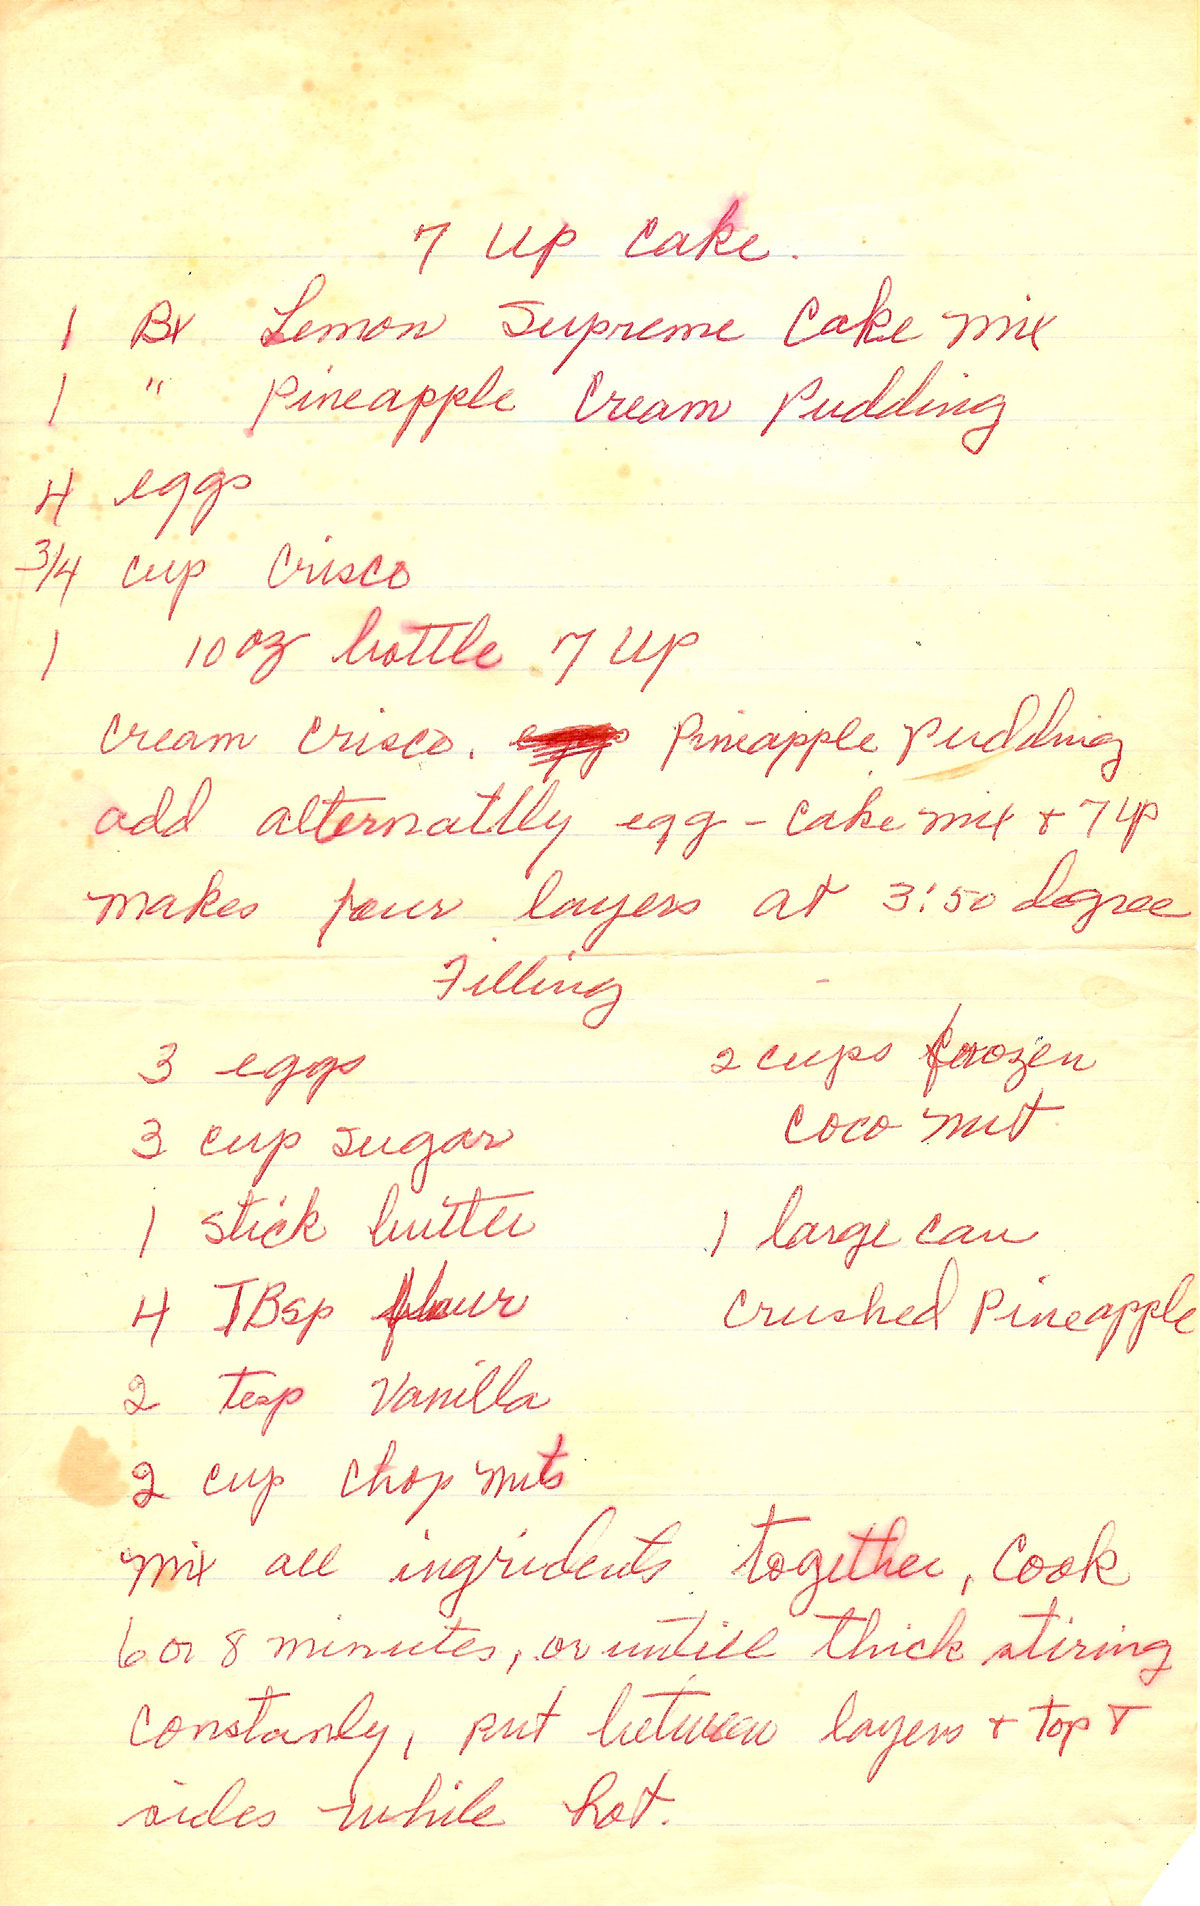 7 Up Cake.
1 Bx Lemon Supreme Cake Mix
1 " Pineapple Cream Pudding
4 eggs
3/4 cup Crisco
1 10 oz bottle 7 UP
Cream Crisco. Pineapple Pudding
add alternatlly egg - Cake mix + 7 up
makes four layers at 3:50 degree
Filling
3 eggs
3 cup sugar
1 stick butter
4 TBsp flour
2 tesp Vanilla
2 cup chop nuts
2 cups frozen
coco nut
1 large can
Crushed Pineapple
mix all ingridents together, Cook
6 or 8 minutes, or untill thick stiring
constanly, put between layers + top +
sides while hot.